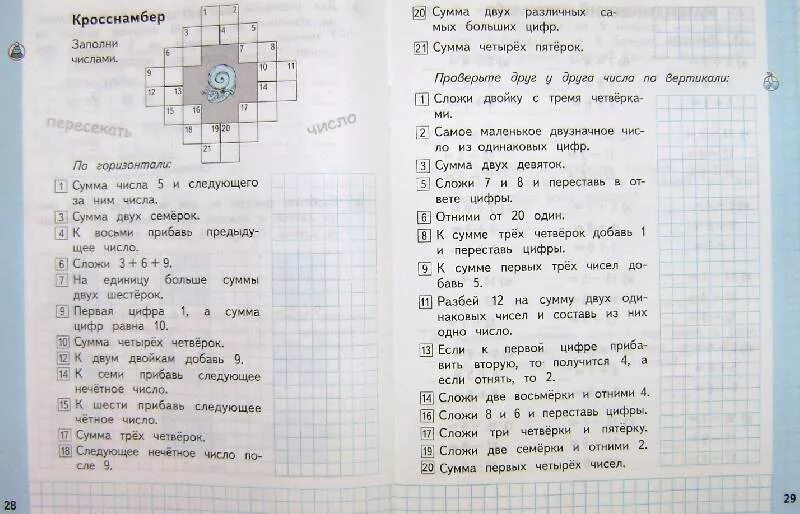 Кросснамбер
Заполни
числами.
1 2
3 4 5
6 7 8
9 10 11
12 13 14
15 16 17
18 19 20
21
пересекать
число
По горизонтали:
1 Сумма числа 5 и следующего
за ним числа.
3 Сумма двух семёрок.
4 К восьми прибавь предыду-
щее число.
6 Сложи 3 + 6 + 9.
7 На единицу больше суммы
двух шестёрок.
9 Первая цифра 1, а сумма
цифр равна 10.
10 Сумма четырёх четвёрок.
12 К двум двойкам добавь 9.
14 К семи прибавь следующее
нечётное число.
15 К шести прибавь следующее
чётное число.
17 Сумма трёх четвёрок.
18 Следующее нечётное число по-
сле 9.
28
20 Сумма двух различных са-
мых больших цифр.
21 Сумма четырёх пятёрок.
Проверьте друг у друга числа по вертикали:
1 Сложи двойку с тремя четвёрка-
ми.
2 Самое маленькое двузначное чис-
ло из одинаковых цифр.
3 Сумма двух девяток.
5 Сложи 7 и 8 и переставь в от-
вете цифры.
6 Отними от 20 один.
8 К сумме трёх четвёрок добавь 1
и переставь цифры.
9 К сумме первых трёх чисел до-
бавь 5.
11 Разбей 12 на сумму двух оди-
наковых чисел и составь из них
одно число.
13 Если к первой цифре приба-
вить вторую, то получится 4, а
если отнять, то 2.
14 Сложи две восьмёрки и отними 4.
16 Сложи 8 и 6 и переставь цифры.
17 Сложи три четвёрки и пятёрку.
19 Сложи две семёрки и отними 2.
20 Сумма первых четырёх чисел.
29